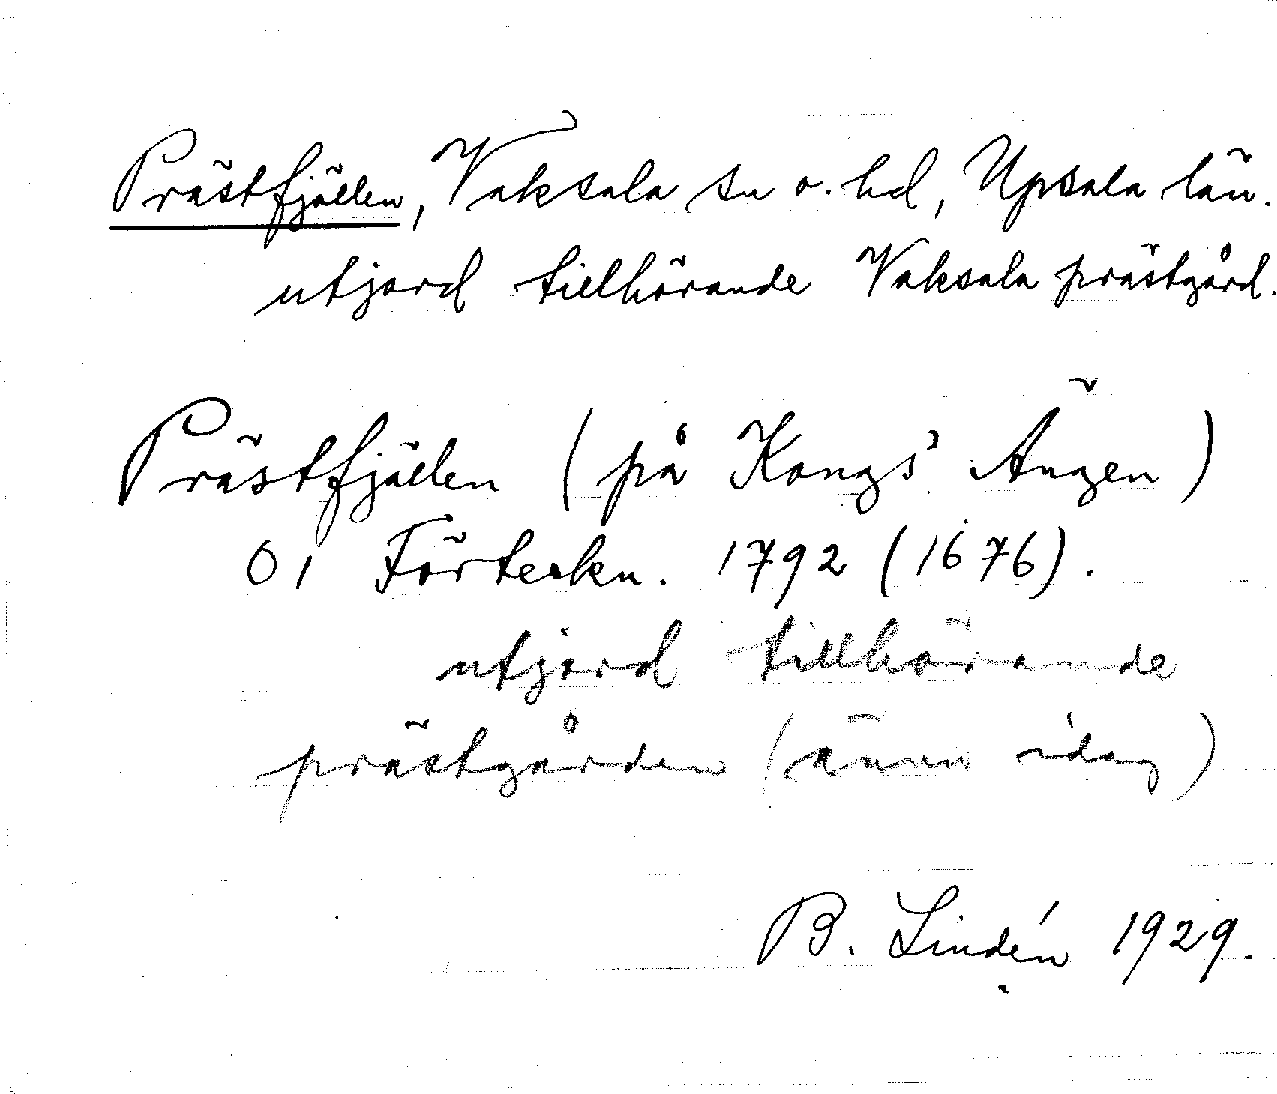 Prästfjällen, Vaksala sn o. hd, Upsala län.
utjord tillhörande Vaksala prästgård.
Prästfjällen (på Kongs Ängen)
01 Förteckn. 1792 (1676).
utjord tillhörande
prästgården (ännu idag)
B. Lindén 1929.